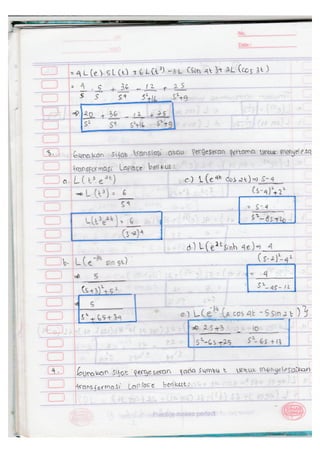 No.
Date:
= 4 L (e). 5 L (t) + 6 L (t³) - 3 L (sin 4t) + 2L (cos 3t)
= 4/s . 5/s + 36/s⁴ - 12/s²+16 + 2s/s²+9
⇒ 20/s² + 36/s⁴ - 12/s²+16 + 2s/s²+9
3. Gunakan sifat translasi atau pergeseran pertama untuk menyelesa
transformasi Laplace berikut:
a. L (t³ e²ᵗ)
⇒ L (t³) = 6/s⁴
L(t³e²ᵗ) = 6/(s-2)⁴
b. L (e⁻³ᵗ sin 5t)
⇒ 5/(s+3)²+5²
⇒ 5/s²+6s+34
c) L (e⁴ᵗ cos 2t) ⇒ s-4/(s-4)²+2²
= s-4/s²-8s+20
d) L (e²ᵗ sinh 4t) ⇒ 4/(s-2)²-4²
= 4/s²-4s-12
e.) L (e³ᵗ (2 cos 4t - 5 sin 2t)}
⇒ 2s+3/s²-6s+25 - 10/s²-6s+13
4. Gunakan sifat pergeseran pada sumbu t untuk menyelesaikan
transformasi Laplace berikut:
Practice makes perfect